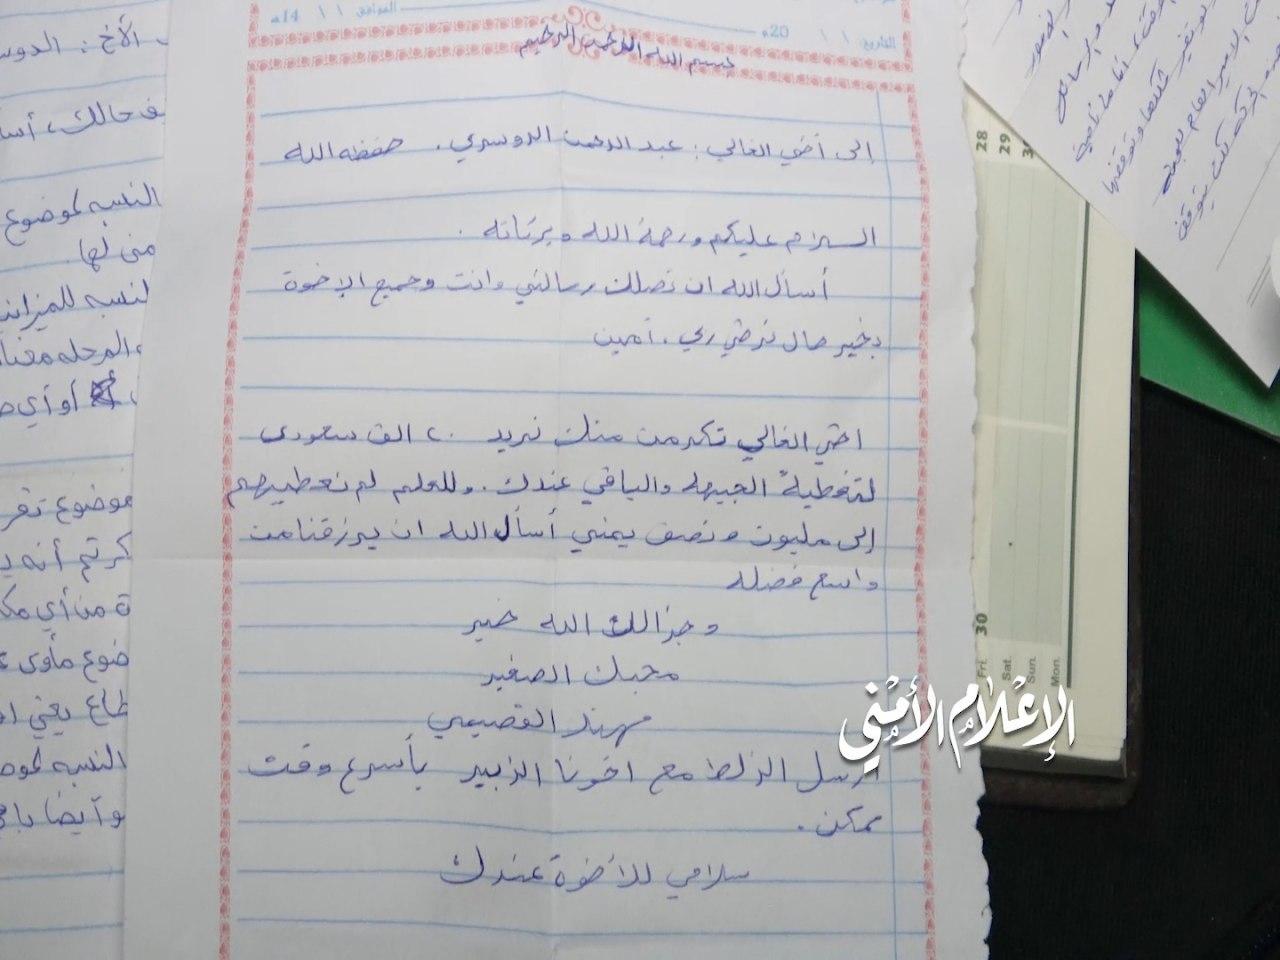 التاريخ / / 20م الموافق / / 14هـ
بسم الله الرحمن الرحيم
إلى أخي الغالي : عبد الرحمن الدوسري . حفظه الله
السلام عليكم ورحمة الله وبركاته .
أسأل الله ان تصلك رسالتي وانت وجميع الإخوة
بخير حال ترضي ربي . آمين
اخي الغالي تكرمت منك نريد ٢٠ الف سعودي
لتغطية الجبهه والباقي عندك . وللعلم لم نعطيهم
إلى مليون ونصف يمني أسأل الله ان يرزقنا من
واسع فضله
وجزاك الله خير
محبك الصغير
مهند القصيمي
ارسل الزلط مع اخونا الزبير بأسرع وقت
ممكن .
سلامي للأخوة عندك
الإعلام الأمني
الأخ : الدوس
ف حالك ، أسأ
النسبه لموضوع
منى لها .
لنسبه للميزاني
أو أي
موضوع تقر
كرتم أنه ي
ة من أي مكا
ضوع مأوى
طاع يعني
النسبه لموض
و أيضا با
28
29
30
Fri.
Sat.
Sun.
Mon.